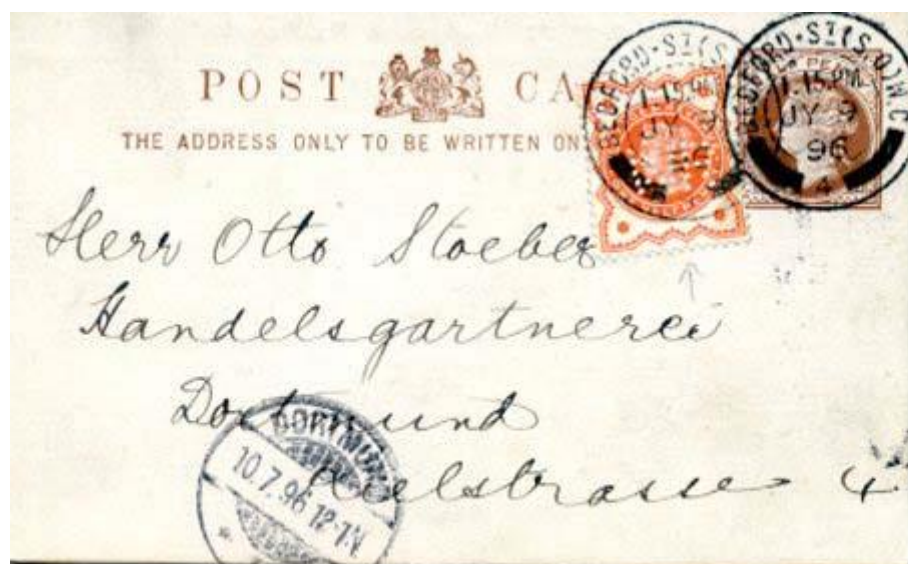 POST CA
THE ADDRESS ONLY TO BE WRITTEN ON
BEDFORD·ST(S
1.15PM
JY 9
96
BEDFORD·ST(S.O)W.C
1.15PM
JY 9
96
4
Herr Otto Stoeber
Handelsgartnerei
Dortmund
DORTMUND
10.7.96 12-1N